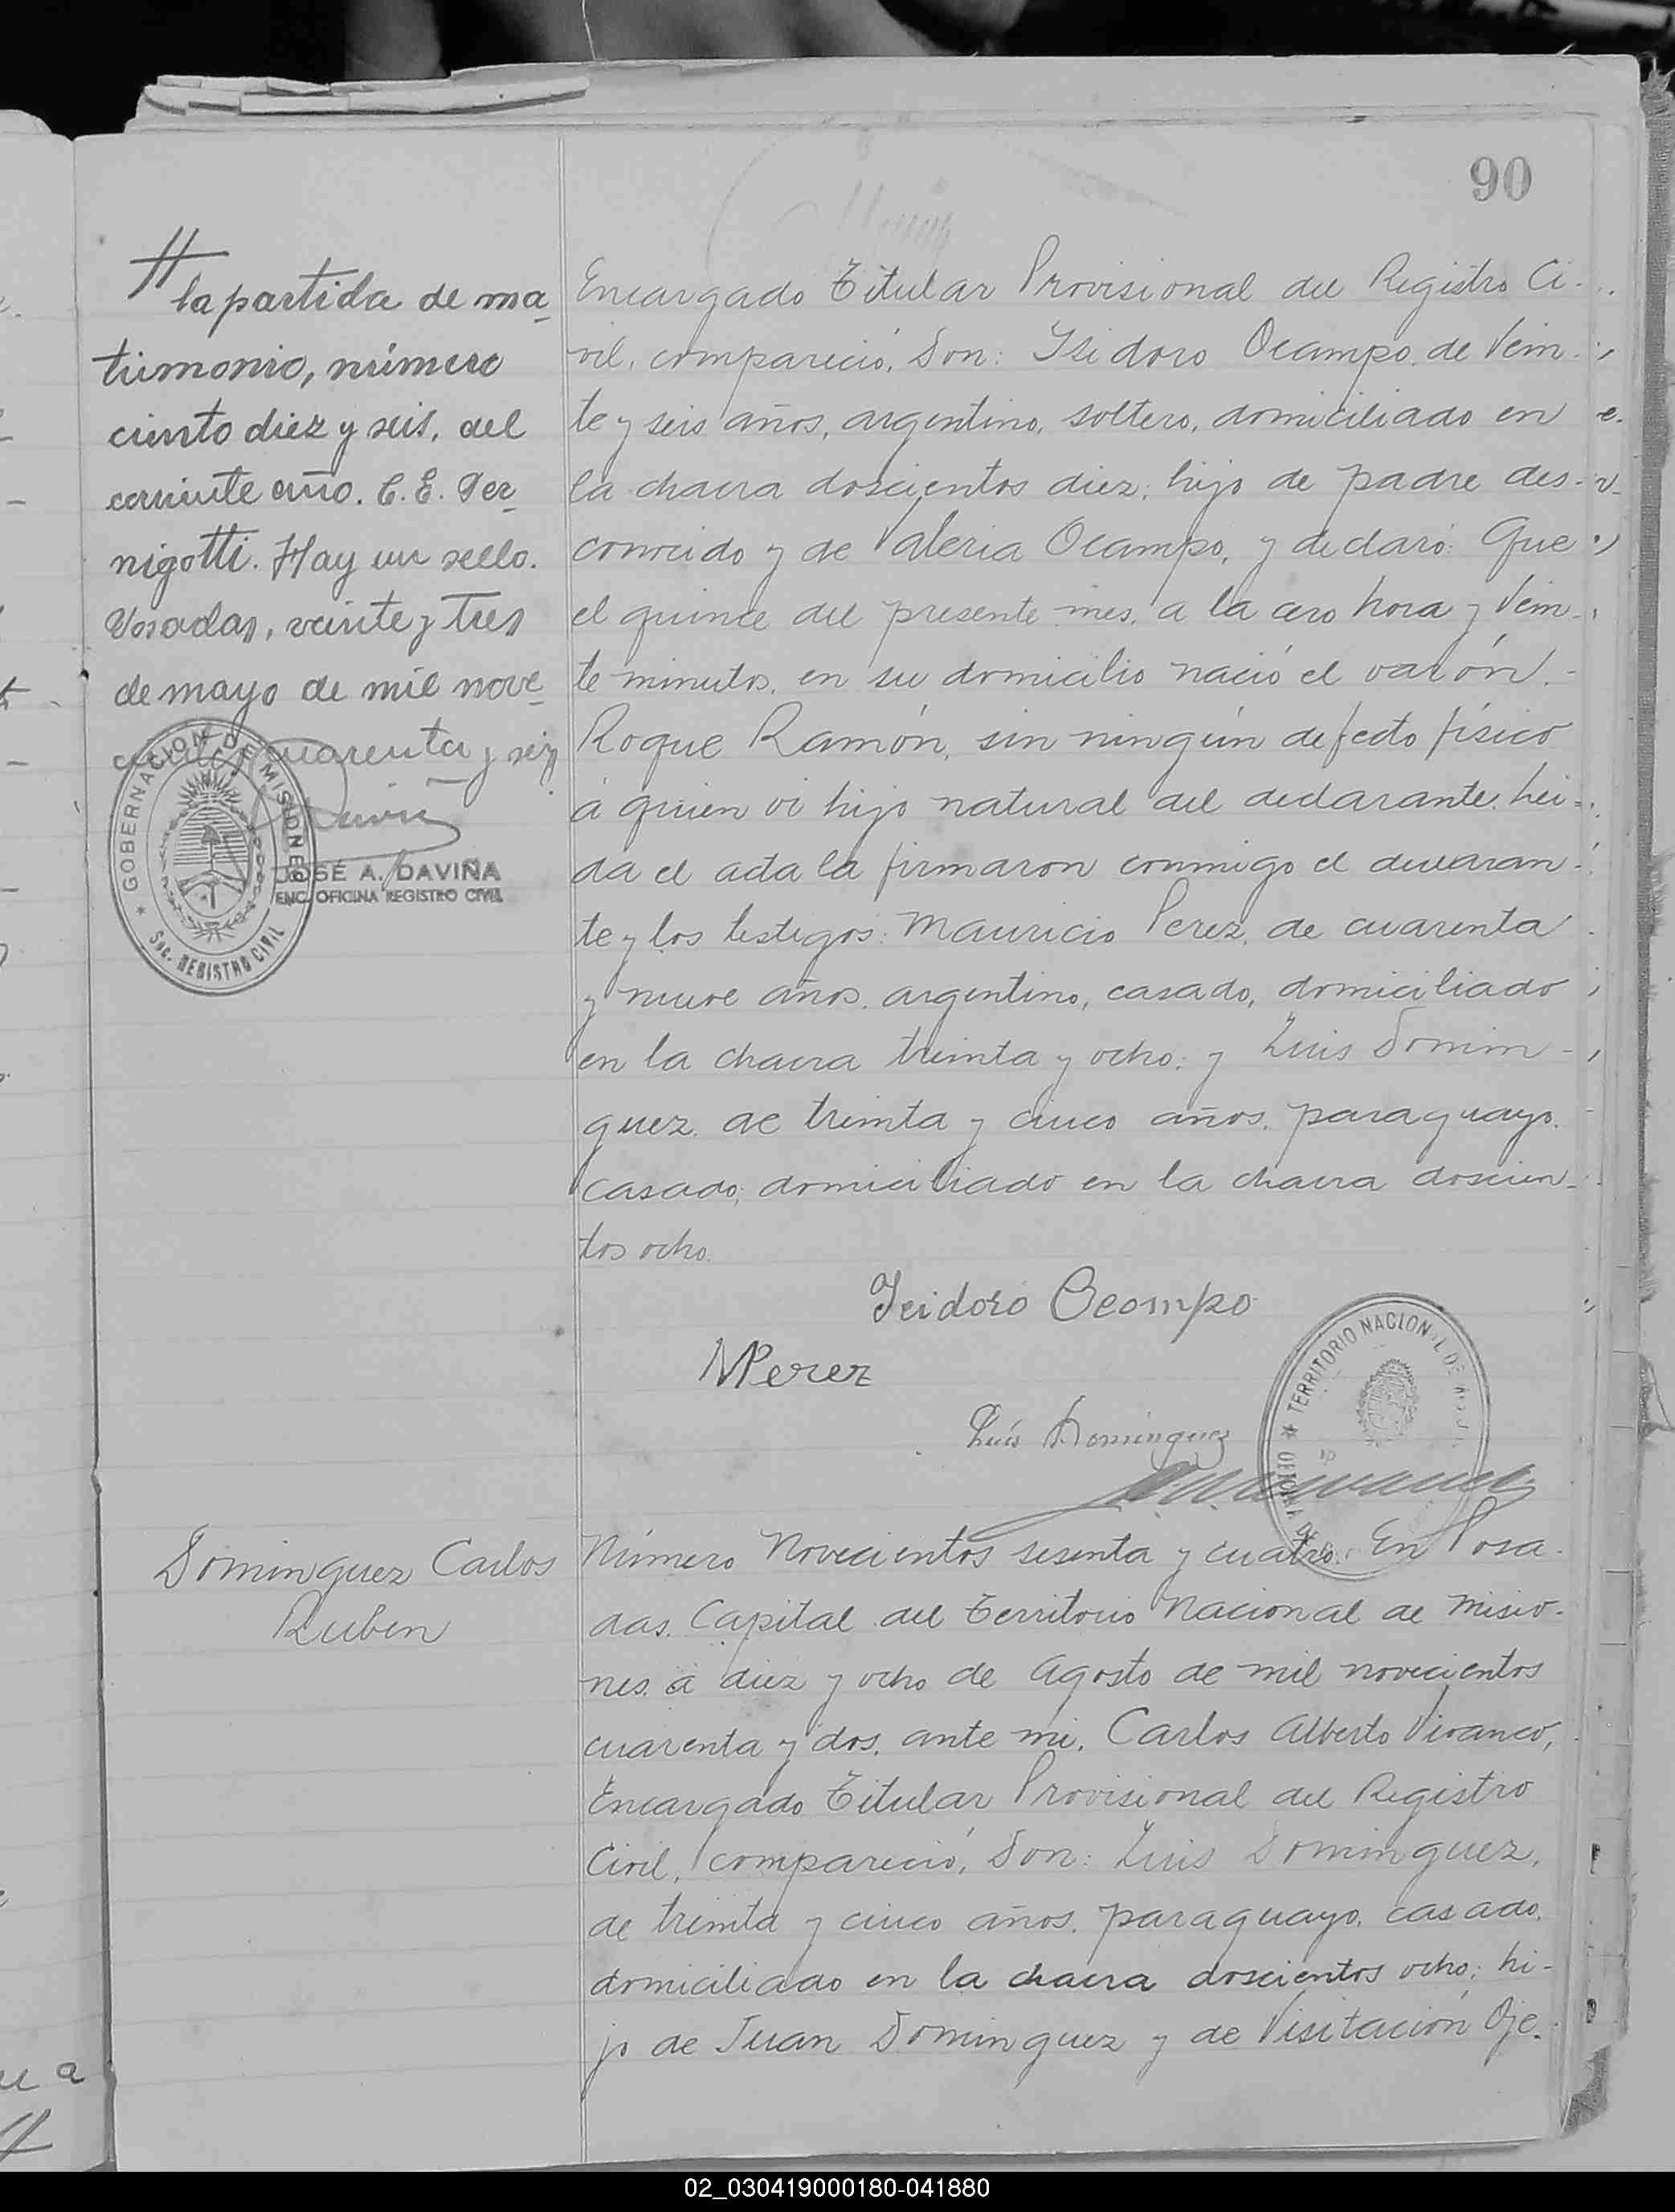 90
la partida de ma
trimonio, número
ciento diez y seis, del
corriente año. C. E. Per
nigotti. Hay un sello.
Posadas, veinte y tres
de mayo de mil nove
cientos cuarenta y seis
GOBERNACION DE MISIONES
Sec. REGISTRO CIVIL
JOSÉ A. DAVIÑA
ENC. OFICINA REGISTRO CIVIL
Encargado Titular Provisional del Registro Ci-
vil, compareció, Don: Isidoro Ocampo, de Vein-
te y seis años, argentino, soltero, domiciliado en
la chacra doscientos diez; hijo de padre des-
conocido y de Valeria Ocampo, y declaró: Que
el quince del presente mes, a la cero hora y Vein-
te minutos, en su domicilio nació el varón.-
Roque Ramón, sin ningún defecto físico
á quien vi hijo natural del declarante. Lei-
da el acta la firmaron conmigo el declaran-
te y los testigos: Mauricio Perez, de cuarenta
y nueve años, argentino, casado, domiciliado
en la chacra treinta y ocho; y Luis Domin-
guez, de treinta y cinco años, paraguayo.
casado, domiciliado en la chacra doscien-
tos ocho.
Isidoro Ocampo
MPerez
Luis Dominguez
TERRITORIO NACIONAL DE
Dominguez Carlos
Ruben
Número Novecientos sesenta y cuatro. En Posa-
das. Capital del Territorio Nacional de Misio-
nes. á diez y ocho de Agosto de mil novecientos
cuarenta y dos. ante mi, Carlos Alberto Vivanco,
Encargado Titular Provisional del Registro
Civil, compareció, Don: Luis Dominguez,
de treinta y cinco años, paraguayo, casado,
domiciliado en la chacra doscientos ocho; hi-
jo de Juan Dominguez y de Visitación Oje-
02_030419000180-041880